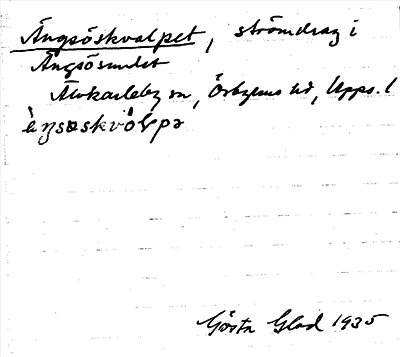 Ängsöskvalpet, strömdrag i
Ängsösundet
Älvkarleby sn, Örbyhus hd, Upps. l
èŋsøskvòlpə
Gösta Glad 1935